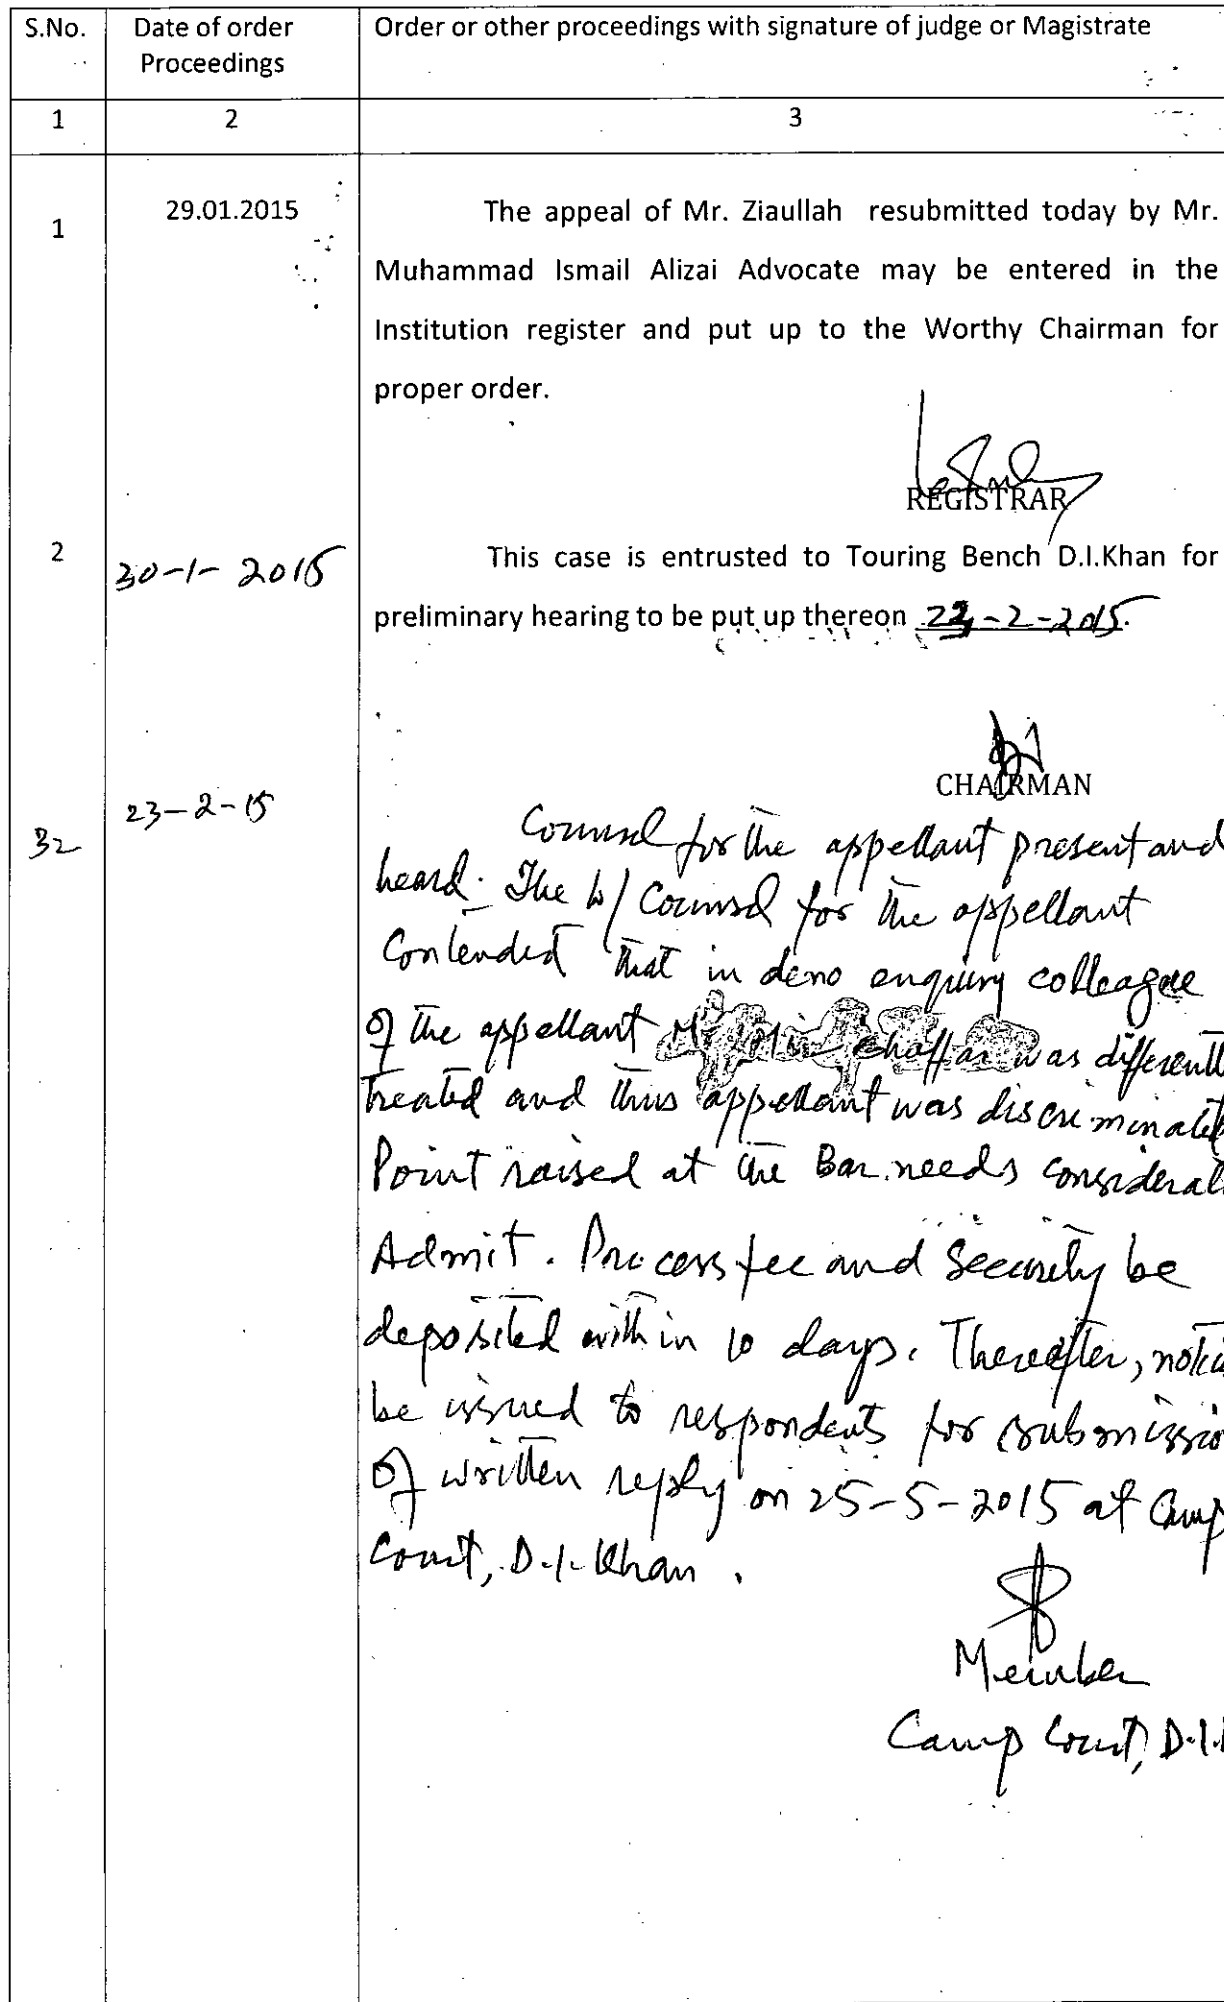 S.No.
Date of order
Proceedings
Order or other proceedings with signature of judge or Magistrate
1
2
3
1
29.01.2015
The appeal of Mr. Ziaullah resubmitted today by Mr.
Muhammad Ismail Alizai Advocate may be entered in the
Institution register and put up to the Worthy Chairman for
proper order.
REGISTRAR
2
30-1-2015
This case is entrusted to Touring Bench D.I.Khan for
preliminary hearing to be put up thereon 23-2-2015.
CHAIRMAN
23-2-15
Counsel for the appellant present and
heard. The Counsel for the appellant
Contended that in deno enquiry colleague
of the appellant was differentl
treated and thus appellant was discriminate
Point raised at the Bar needs considerat
Admit. Process fee and Security be
deposited within 10 days. Thereafter, notic
be issued to respondents for submissio
of written reply on 25-5-2015 at Camp
Court, D.I.Khan.
Member
Camp Court, D.I.